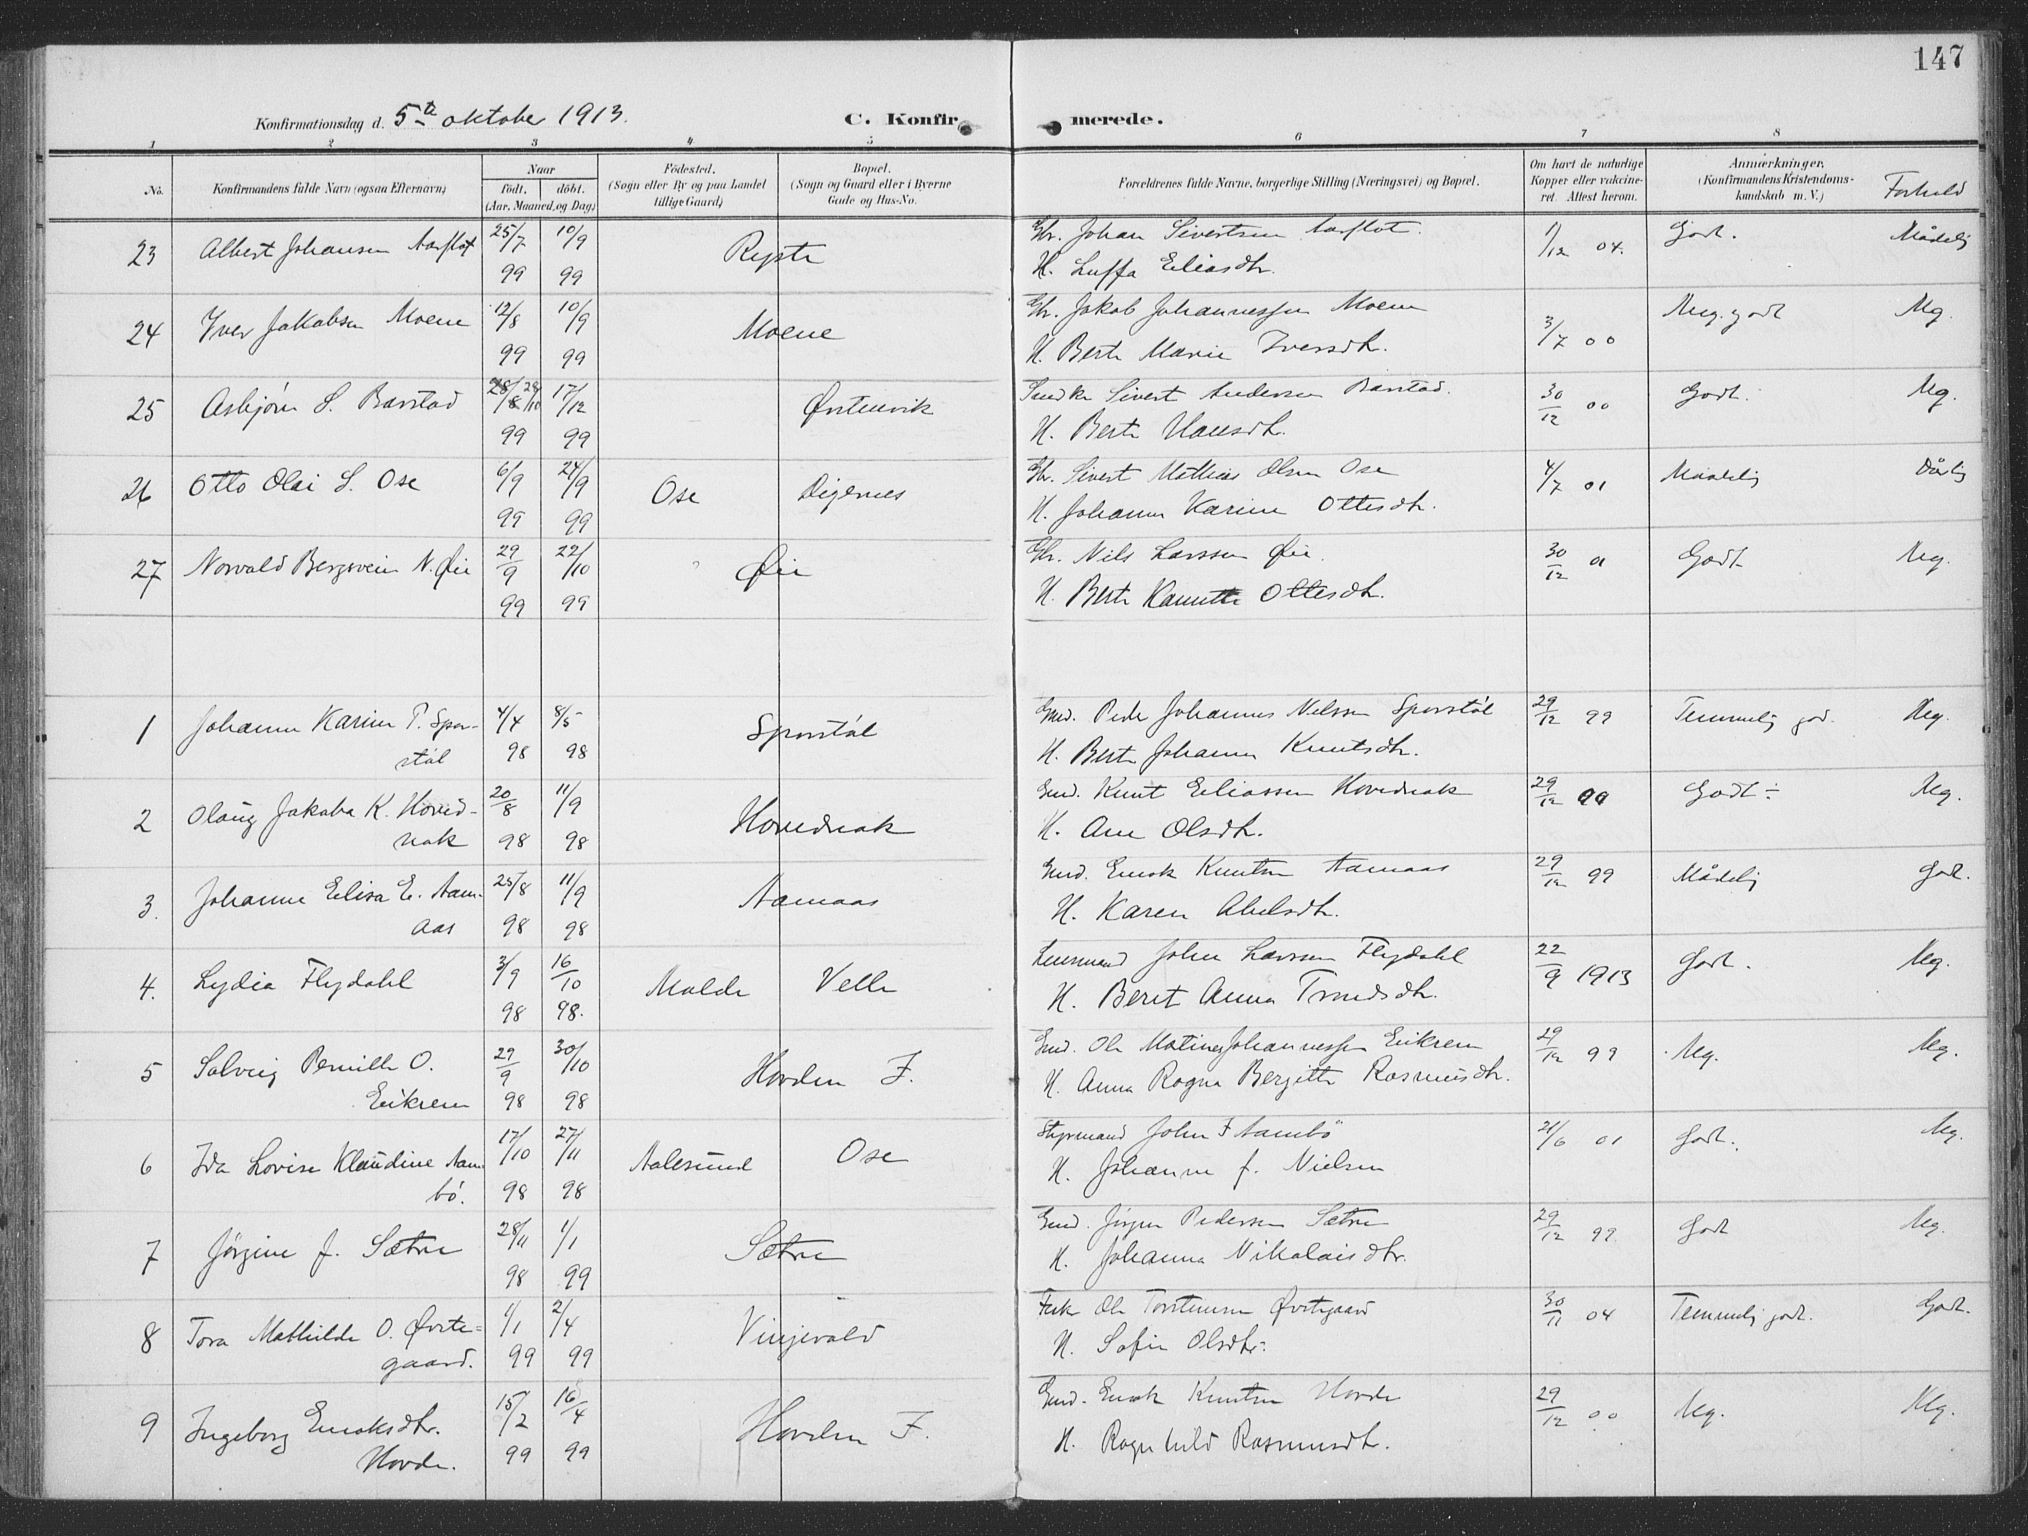 147
Konfirmationsdag d. 5te oktober 1913. C. Konfirmerede.
1 2 3 4 5 6 7 8
No. Konfirmandens fulde Navn (ogsaa Efternavn) Naar født. døbt. (Aar, Maaned og Dag) Fødested. (Sogn eller By og paa Landet tillige Gaard) Bopæl. (Sogn og Gaard eller i Byerne Gade og Hus-No. Forældrenes fulde Navne, borgerlige Stilling (Næringsvei) og Bopæl. Om havt de naturlige Kopper eller vakcineret. Attest herom. Anmærkninger. (Konfirmandens Kristendomskundskab m. V.) Forhold
23 Albert Johansen Aarflot 25/7 99 10/9 99 Ryste Gbr. Johan Sivertsen Aarflot. 1/12 04. Godt. Mådelig
H. Luffa Eliasdtr.
24 Yver Jakobsen Moene 12/8 99 10/9 99 Moene Gbr. Jakob Johannessen Moene 3/7 00 Meg. godt Mg.
H. Berte Marie Iversdtr.
25 Asbjørn S. Barstad 28/8 29/10 99 17/12 99 Østenvik Sivert Andersen Barstad. 30/12 00 Godt. Mg.
H. Berte Hansdtr.
26 Otto Olai S. Ose 6/9 99 24/9 99 Ose Digernes Gbr. Sivert Mathias Olsen Ose 4/7 01 Maadelig Dårlig
H. Johanne Karine Ottesdtr.
27 Norvald Bergsvein N. Øie 29/9 99 22/10 99 Øie Gbr. Nils Larssen Øie. 30/12 01 Godt Meg.
H. Berte Kanutte Ottesdtr.
1 Johanne Karine P. Sporstøl 4/4 98 8/5 98 Sporstøl Gmd. Peder Johannes Nelsen Sporstøl 29/12 99 Temmelig god. Meg.
H. Berte Johanne Knutsdtr.
2 Olaug Jakoba K. Hovednak 20/8 98 11/9 98 Hovednak Gmd. Knut Eliassen Hovednak 29/12 99 Godt ÷ Meg.
H. Ane Olsdtr.
3. Johanne Elisa E. Aamaas 25/8 98 11/9 98 Aamaas Gmd. Enok Knutsen Aamaas 29/12 99 Mådelig God.
H. Karen Abelsdtr.
4. Lydia Flydahl 3/9 98 16/10 98. Molde Velle Lensmand John Larsen Flydahl 22/9 1913 Godt. Meg.
H. Beret Anna Trondsdtr.
5 Solveig Pernille O. Eikrem 29/9 98 30/10 98 Hovden F. Gmd. Ole Matines Johannessen Eikrem 29/12 99 Mg. Mg.
H. Anna Ragna Bergitte Rasmusdtr.
6 Ida Lovise Klaudine Aambø. 17/10 98 27/11 98 Aalesund Ose Styrmand John F Aambø 21/6 01 Godt. Mg.
H. Johanne f. Nielsen
7 Jørgine J. Sætre 28/11 98 1/1 99 Sætre Gmd. Jørgen Pedersen Sætre 29/12 99. Godt Mg.
H. Johanna Nikolaisdtr.
8 Tora Mathilde O. Øvstegaard. 1/1 99 2/4 99 Vinjevold Fisk Ole Torstensen Øvstegaard 30/11 04 Temmelig godt. Godt.
H. Sofie Olsdtr.
9 Ingeborg Enoksdtr. Hovde. 15/2 99 16/4 99 Hovden F. Gmd. Enok Knutsen Hovde 29/12 00 Mg. Mg.
H. Ragnhild Rasmusdtr.